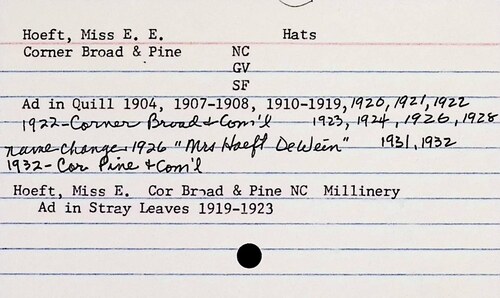 Hoeft, Miss E. E. Hats
Corner Broad & Pine NC
GV
SF
Ad in Quill 1904, 1907-1908, 1910-1919, 1920, 1921, 1922
1922-Corner Broad & Com'l 1923, 1924, 1926, 1928
name change 1926 "Mrs Hoeft DeWein" 1931, 1932
1932- Cor Pine & Com'l
Hoeft, Miss E. Cor Broad & Pine NC Millinery
Ad in Stray Leaves 1919-1923